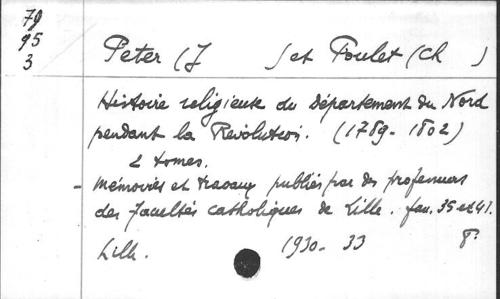 79
95
3
Peter (J ) et Poulet (Ch )
Histoire religieuse du Département du Nord
pendant la Révolution. (1789-1802)
2 tomes.
- Mémoires et travaux publiés par des professeurs
des facultés catholiques de Lille. fasc. 35 et 41.
Lille. 1930-33 8º